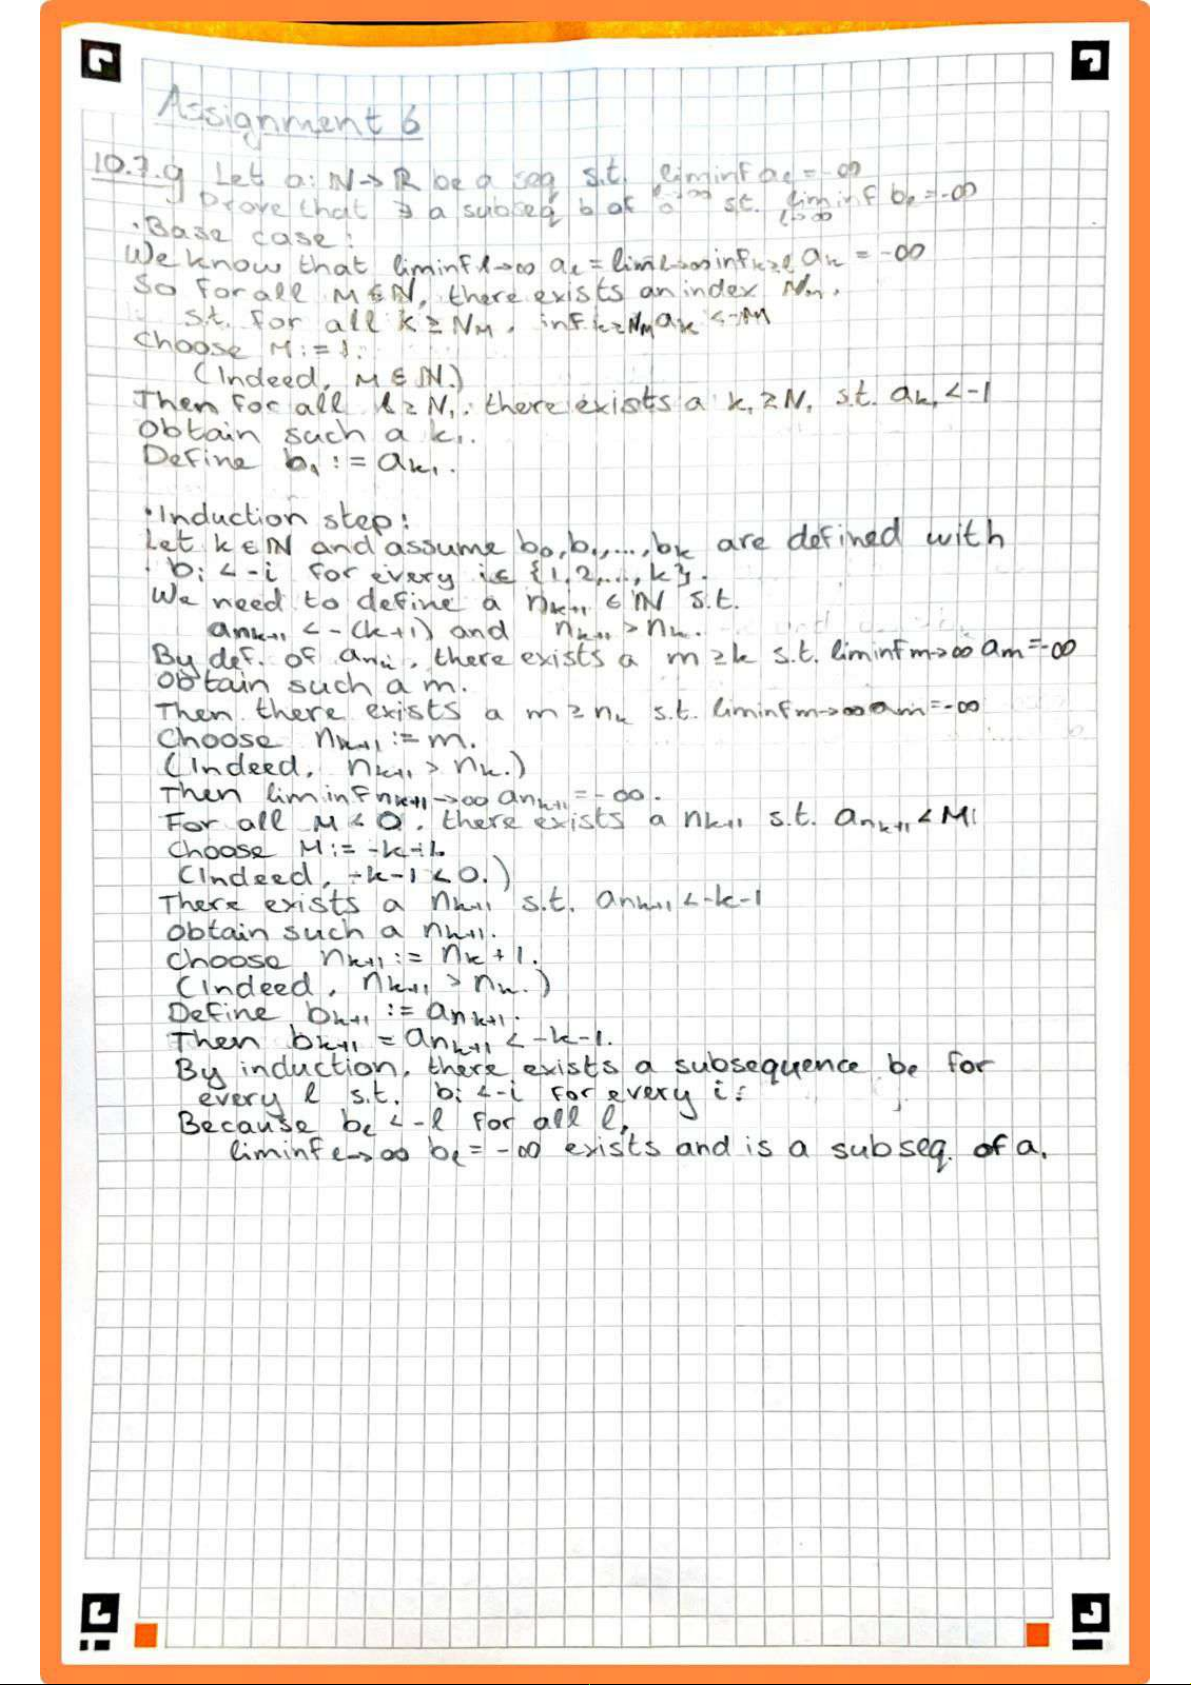 Assignment 6
10.7.9 Let a: ℕ→ℝ be a seq s.t. liminf a_ℓ = -∞
Prove that ∃ a subseq b of a s.t. liminf_{ℓ→∞} b_ℓ = -∞
· Base case:
We know that liminf ℓ→∞ a_ℓ = lim ℓ→∞ inf_{k≥ℓ} a_k = -∞
So for all M ∈ ℕ, there exists an index N_M,
s.t. for all k ≥ N_M, inf_{k≥N_M} a_k < -M
Choose M := 1.
(Indeed, M ∈ ℕ.)
Then for all ℓ ≥ N₁, there exists a k₁ ≥ N₁ s.t. a_{k₁} < -1
Obtain such a k₁.
Define b₁ := a_{k₁}.
· Induction step:
Let k ∈ ℕ and assume b₀, b₁, ..., b_k are defined with
b_i < -i for every i ∈ {1, 2, ..., k}.
We need to define a n_{k+1} ∈ ℕ s.t.
a_{n_{k+1}} < -(k+1) and n_{k+1} > n_k.
By def. of a_{n_i}, there exists a m ≥ k s.t. liminf m→∞ a_m = -∞
Obtain such a m.
Then there exists a m ≥ n_k s.t. liminf m→∞ a_m = -∞
Choose n_{k+1} := m.
(Indeed, n_{k+1} > n_k.)
Then liminf n_{k+1}→∞ a_{n_{k+1}} = -∞.
For all M < 0, there exists a n_{k+1} s.t. a_{n_{k+1}} < M
Choose M := -k-1.
(Indeed, -k-1 < 0.)
There exists a n_{k+1} s.t. a_{n_{k+1}} < -k-1
Obtain such a n_{k+1}.
Choose n_{k+1} := n_k + 1.
(Indeed, n_{k+1} > n_k.)
Define b_{k+1} := a_{n_{k+1}}.
Then b_{k+1} = a_{n_{k+1}} < -k-1.
By induction, there exists a subsequence b_ℓ for
every ℓ s.t. b_i < -i for every i.
Because b_ℓ < -ℓ for all ℓ,
liminf ℓ→∞ b_ℓ = -∞ exists and is a subseq. of a.